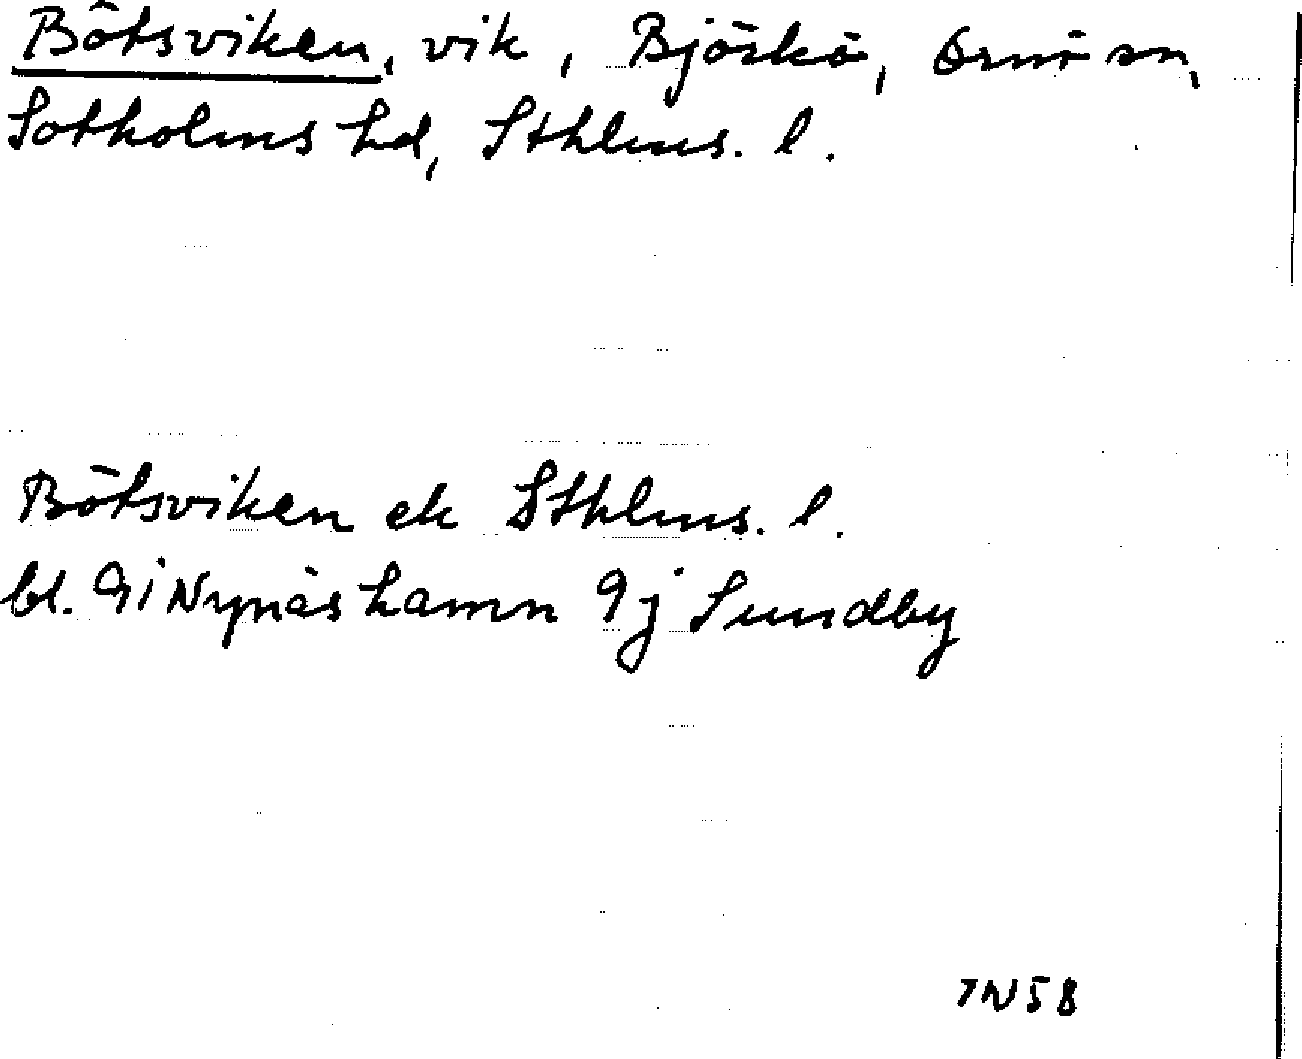 Bötsviken, vik, Björkö, Ornö sn,
Sotholms hd, Sthlms. l.
Bötsviken ek Sthlms. l.
bl. 9i Nynäshamn 9j Sundby
7N58